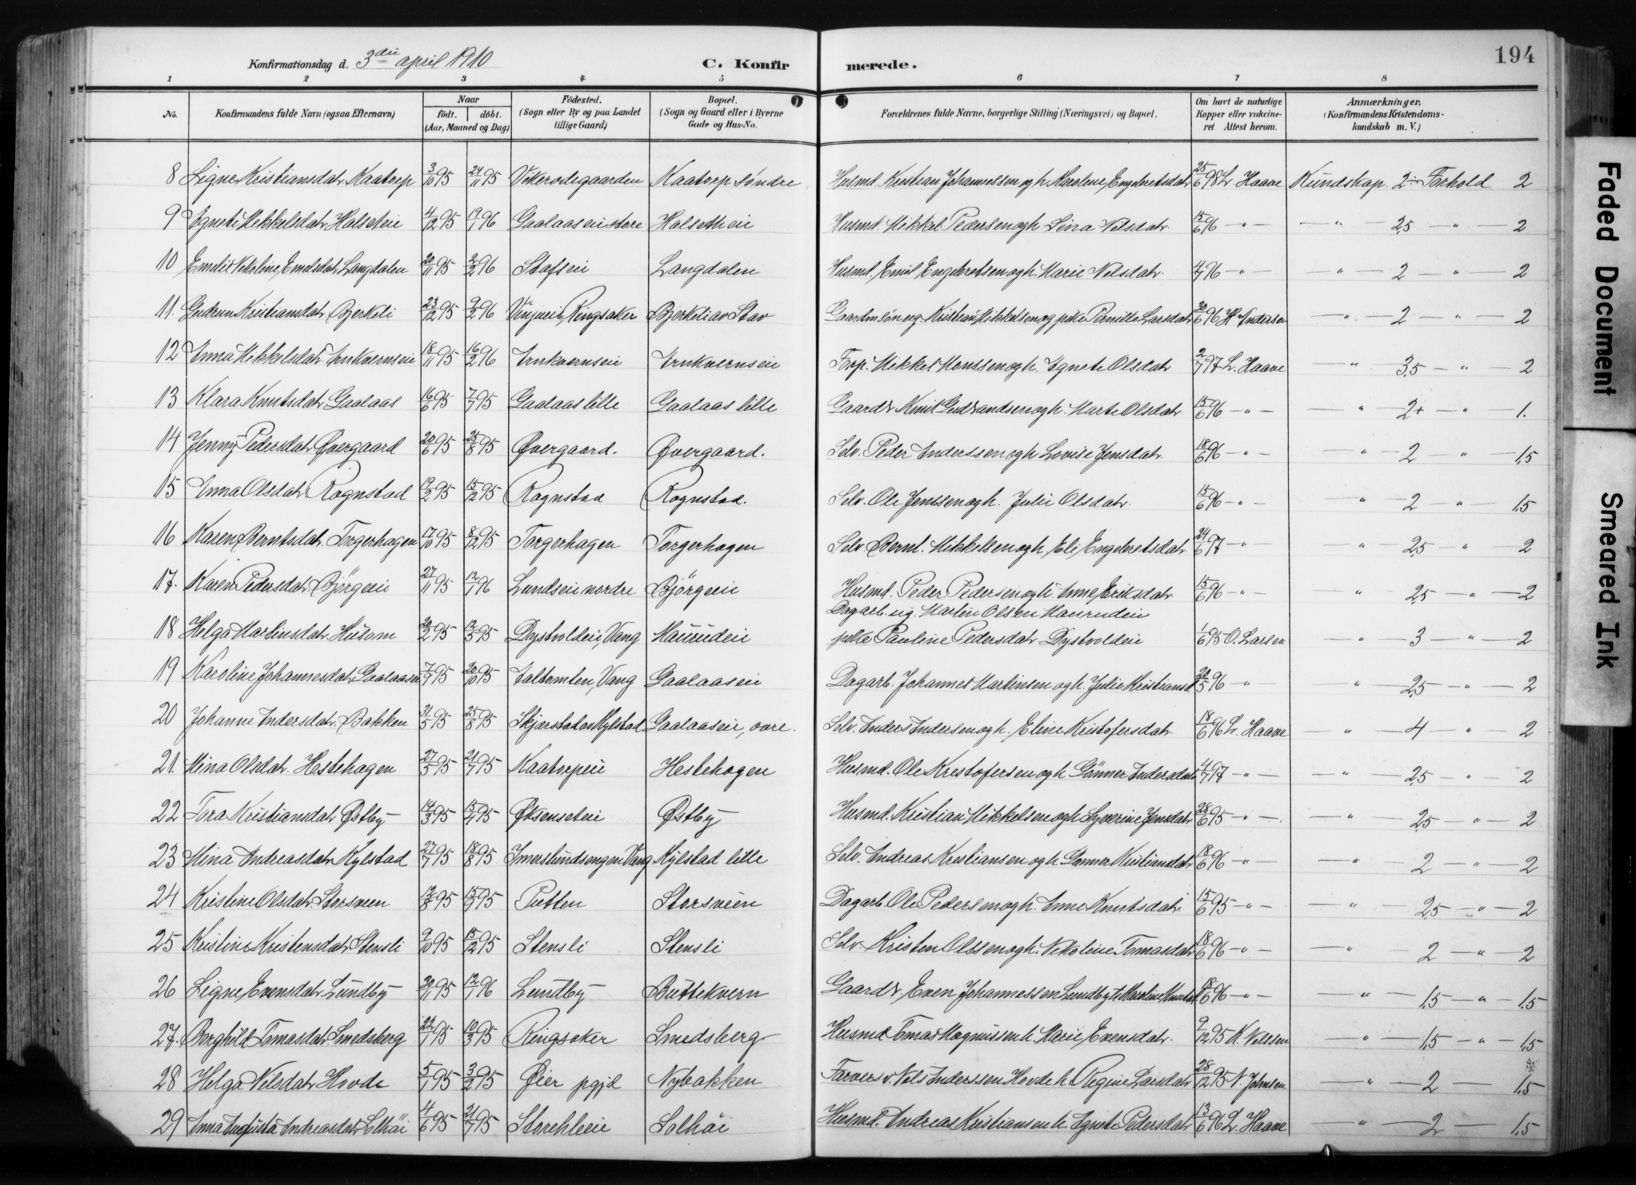 Konfirmationsdag d. 3die april 1910 C. Konfirmerede. 194
1 2 3 4 5 6 7 8
No. Konfirmandens fulde Navn (ogsaa Efternavn) Naar født. døbt. (Aar, Maaned og Dag) Fødested. (Sogn eller By og paa Landet tillige Gaard) Bopæl. (Sogn og Gaard eller i Byerne Gade og Hus-No.) Forældrenes fulde Navne, borgerlige Stilling (Næringsvei) og Bopæl. Om havt de naturlige Kopper eller vaccineret. Attest herom. Anmærkninger. (Konfirmandens Kristendomskundskab m. V.)
8 Signe Kristiansdatr Kaatorp 3/10 95 24/11 95 Kaatorp søndre Husmd. Kristian Johannessen og h. Karolene Engebretsdatr 25/6 98 L. Haave Kundskap 2 - Forhold 2
9 Agnete Mikkelsdatr Halseteie 4/12 95 96 Gaalaaseie store Halsetheie Husmd. Mikkel Pedersen og h. Lina Nelsdatr 15/6 96 - " - - " - 2,5 - " - 2
10 Emilie Nikoline Emilsdatr Langdalen 20/11 95 2/2 96 Stafseie Langdalen Husmd. Emil Engebretsen og h. Marie Nelsdatr 4/7 96 - " - " - 2 - " - 2
11. Gudrun Kristiansdatr Bjerkeli 23/12 95 9/2 96 Ringsaker Bjerkeli av Stav Gaardm søn ug. Kristian Mikkelsen og pike Pernille Larsdatr 30/6 96 H. Andersen - " - 2 - " - 2
12 Anna Mikkelsdatr Arnkverneie 18/11 95 16/2 96 Arnkverneie Arnkverneie Forp. Mikkel Monssen og h. Agnete Olsdatr 2/7 97 L. Haave " - 3,5 - " - 2
13 Klara Knutsdatr Gaalaas 16/6 95 7/7 95 Gaalaas lille Gaalaas lille Gaardr Knut Gudbrandsen og h. Marte Olsdatr 15/6 96 - " - " - 2+ - " - 1.
14 Jenny Pedersdatr Øvergaard 20/6 95 25/8 95 Øvergaard. Øvergaard. Selv. Peder Anderssen og h. Lovise Jensdatr 18/6 96 - " - " - 2 - " - 1,5
15 Anna Olsdatr Rognstad 95 15/12 95 Rognstad Rognstad. Selv. Ole Jenssen og h. Julie Olsdatr 15/6 96 - " - " - 2 - " - 1,5
16 Karen Berntsdatr Torgerhagen 17/10 95 8/12 95 Torgerhagen Torgerhagen Selv Bernt Mikkelsen og h. Eli Engebretsdatr 24/6 97 - " " - 2,5 - " - 2
17. Karen Pedersdatr Bjørgeeie 27/11 95 12/7 96 Lundseie nordre Bjørgeeie Husmd. Peder Pedersen og h. Anne Eriksdatr 15/6 96 - " " - 2,5 - " - 2
Dagarb. ug. Martin Olsen Maurudeie
18 Helga Martinsdatr Husom 95 95 Dystvoldeie, Vang Maurudeie pike Pauline Pedersdatr Dystvoldeie 1/6 95 O. Larsen " - 3 - " - 2
19 Karoline Johannesdatr Gaalaaseie 7/7 95 20/10 95 Vang Gaalaaseie Dagarb. Johannes Martinsen og h. Julie Kristiansd 96 - " " - 2,5 - " - 2
20 Johanne Andersdatr Bakken 31/5 95 25/8 95 Gaalaaseie, øvre. Selv. Anders Andersen og h. Eline Kristofersdatr 18/6 96 L. Haave " - 4 - " - 2
21. Mina Olsdatr Hestehagen 27/5 95 21/7 95 Kaatorpeie Hestehagen Husmd. Ole Kristofersen og h. Gunnor Andersdatr 4/7 97 - " - - " - 2,5 - " - 2
22 Tora Kristiansdatr Østby 14/3 95 95 Øksenseteie Østby Husmd. Kristian Mikkelsen og h. Syverine Jensdatr 28/6 95 - " - - " - 2,5 - " - 2
23 Mina Andreasdatr Kylstad 21/7 95 18/8 95 Imerslundsengen, Vang Kylstad lille Selv. Andreas Kristiansen og h. Gunnor Kristiansdatr 18/6 96 - " - " - 2 - " - 2
24 Kristine Olsdatr Storsveen 95 15/9 95 Putten Storsveen Dagarb. Ole Pedersen og h. Anne Knutsdatr 15/6 95 - " - - " - 2,5 - " - 2
25 Kristine Kristensdatr Stensli 9/10 95 15/12 95 Stensli Stensli Selv Kristen Olssen og h. Nikoline Tomasdatr 18/6 96 - " - - " - 2 - " - 2
26 Signe Evensdatr Lundby 20/11 95 12/7 96 Lundby Buttekvern Gaardr. Even Johannessen Lundby h. Karoline 96 - " - " - 1,5 - " - 1,5
27. Borghild Tomasdatr Smedsberg 95 10/3 95 Ringsaker Smedsberg Husmd. Tomas Magnussen h. Marie Evensdatr. 9/12 95 N. Nelssen " - 1,5 - " - 1,5
28 Helga Nelsdatr Hovde 5/1 95 3/3 95 Øier pgjd Nybakken Nels Anderssen Hovde h. Regine Larsdatr 28/12 95 N. Johnsen " - 2 - 1,5
29 Anna Augusta Andreasdatr Solhøi 4/6 95 21/7 95 Storihleeie Solhøi Husmd. Andreas Kristiansen h. Agnete Pedersdatr 13/6 96 L. Haave - " - 2 - 1,5
Faded Document
Smeared Ink